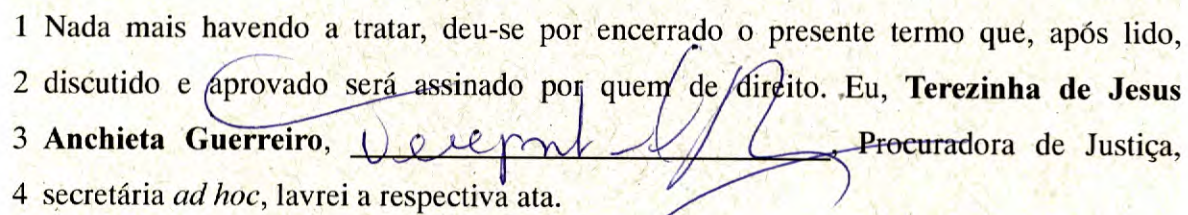 1 Nada mais havendo a tratar, deu-se por encerrado o presente termo que, após lido,
2 discutido e aprovado será assinado por quem de direito. Eu, Terezinha de Jesus
3 Anchieta Guerreiro, , Procuradora de Justiça,
4 secretária ad hoc, lavrei a respectiva ata.